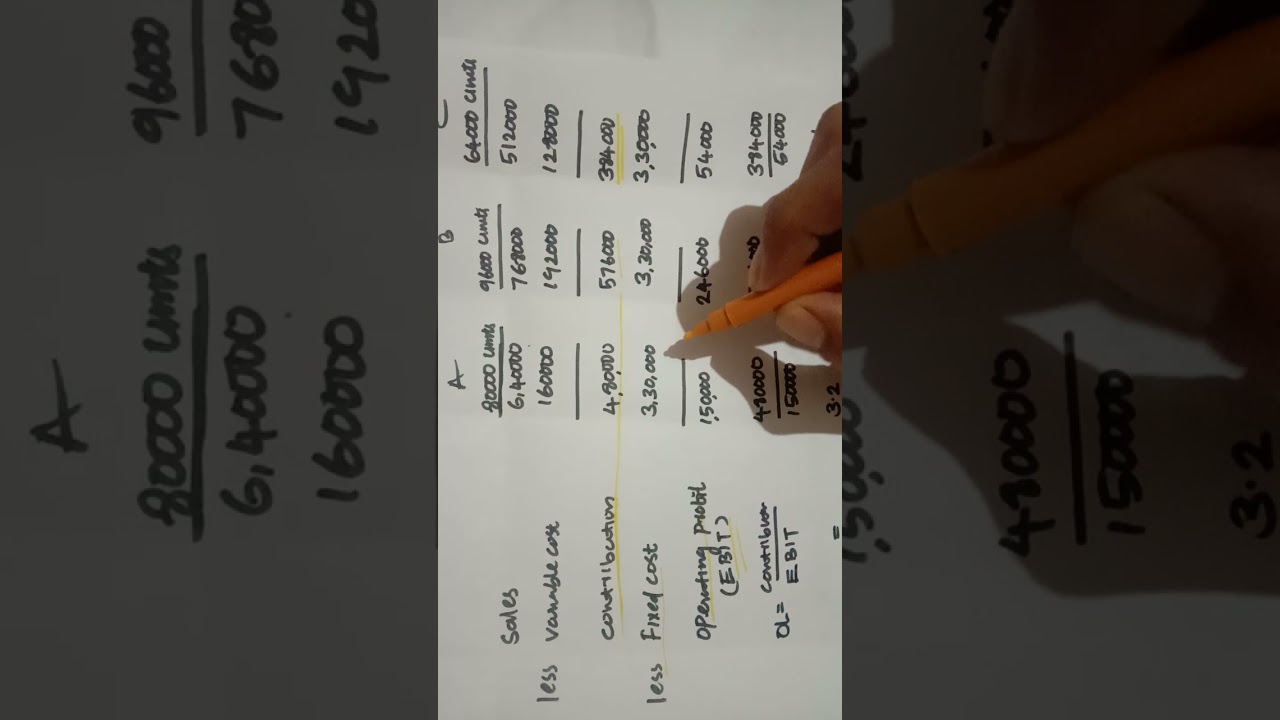 A B C
80000 units 96000 units 64000 units
Sales 6,40000 768000 512000
less variable cost 160000 192000 128000
contribution 4,80,000 576000 384000
less Fixed cost 3,30,000 3,30,000 3,30,000
operating profit 1,50,000 246000 54000
(EBIT)
OL = contribution 480000 384000
EBIT 150000 54000
= 3.2